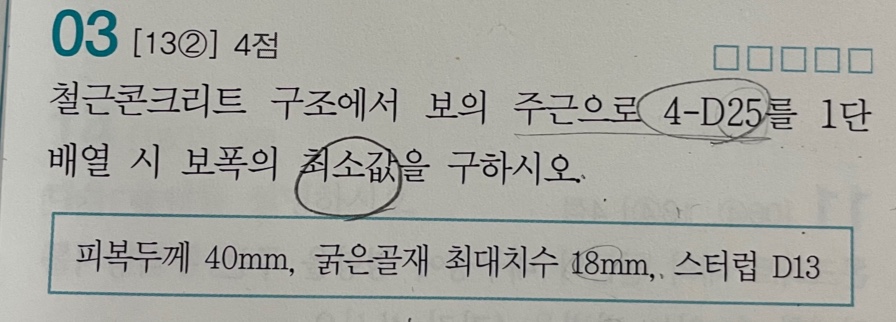 03 [13②] 4점
철근콘크리트 구조에서 보의 주근으로 4-D25를 1단
배열 시 보폭의 최소값을 구하시오.
피복두께 40mm, 굵은골재 최대치수 18mm, 스터럽 D13